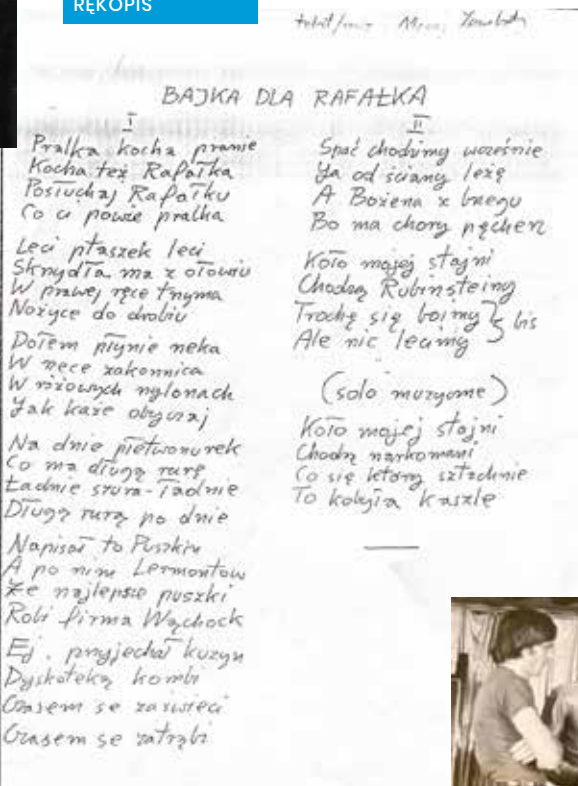 RĘKOPIS
tekst/muz.
BAJKA DLA RAFAŁKA
I
Pralka kocha pranie
Kocha też Rafałka
Posłuchaj Rafałku
Co ci powie pralka
Leci ptaszek leci
Skrzydła ma z ołowiu
W prawej ręce trzyma
Nożyce do drobiu
Dołem płynie rzeka
W rzece zakonnica
W różowych nylonach
Jak każe obyczaj
Na dnie płetwonurek
Co ma długą rurę
Ładnie szura-ładnie
Długą rurą po dnie
Napisał to Puszkin
A po nim Lermontow
Że najlepsze puszki
Robi firma Wąchock
Ej, przyjechał kuzyn
Dyskoteką kombi
Czasem se zaświeci
Czasem se zatrąbi
II
Spać chodzimy wcześnie
Ja od ściany leżę
A Bożena z brzegu
Bo ma chory pęcherz
Koło mojej stajni
Chodzą Rubinsteiny
Trochę się boimy
Ale nic lecimy
bis
(solo muzyczne)
Koło mojej stajni
Chodzą narkomani
Co się który sztachnie
To kobyła kaszle